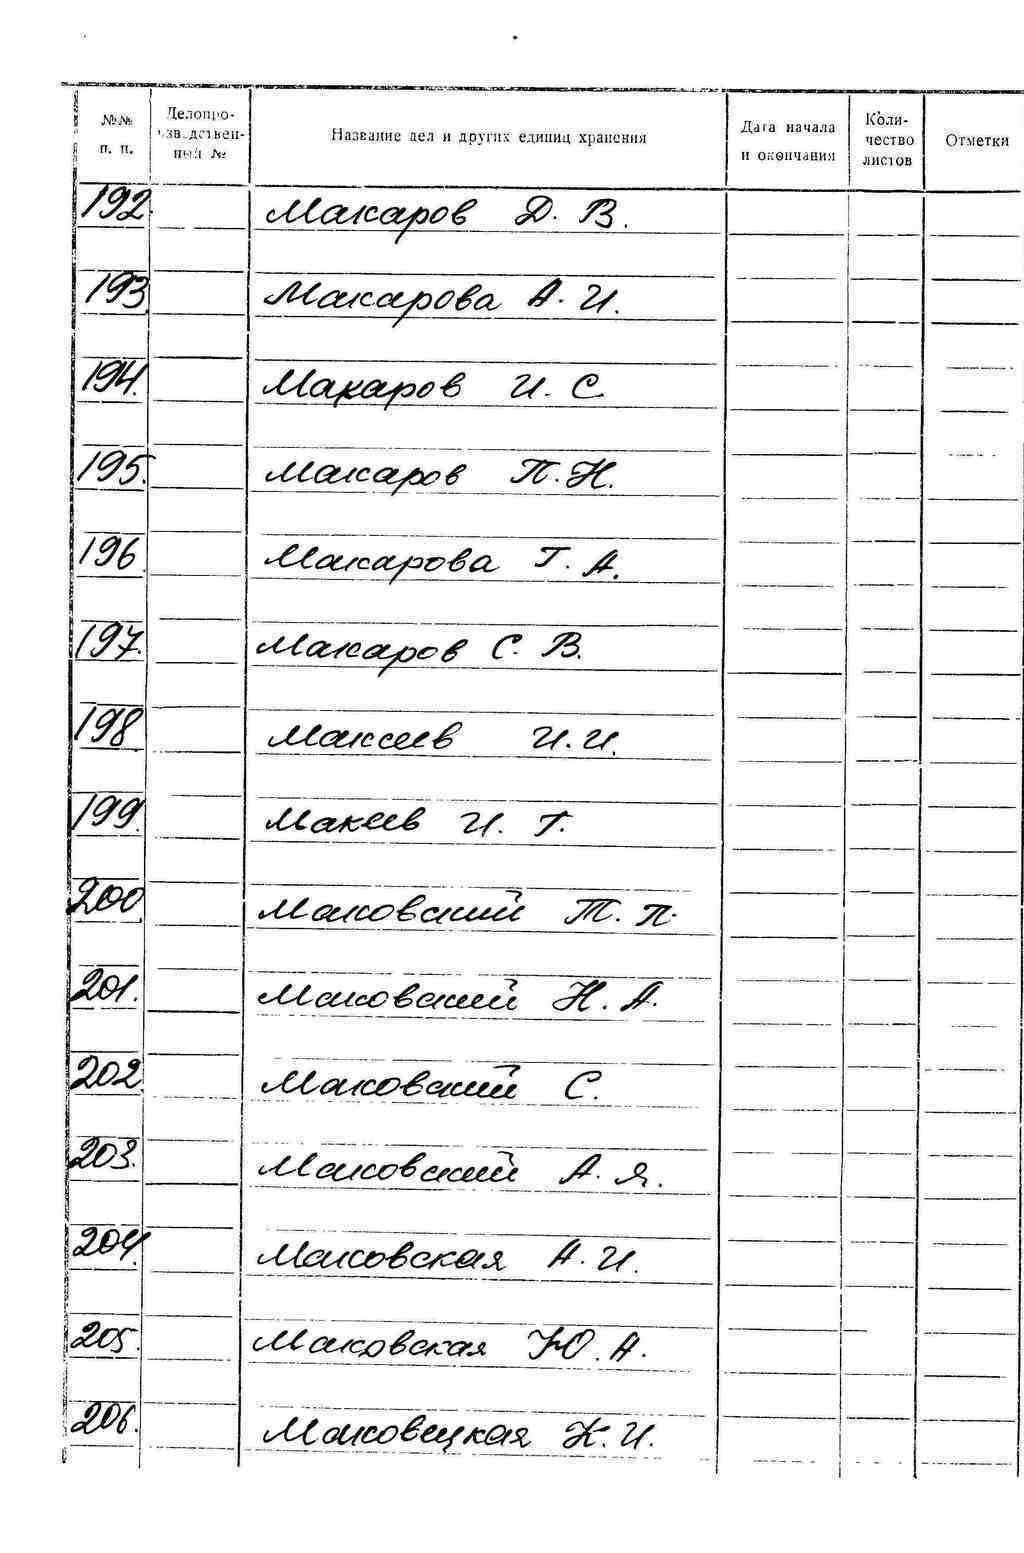 №№ п. п. Делопро-изводствен-ный № Название дел и других единиц хранения Дата начала и окончания Коли-чество листов Отметки
192. Макаров Д. В.
193. Макарова А. И.
194. Макаров И. С.
195. Макаров П. Н.
196. Макарова Г. А.
197. Макаров С. В.
198. Макеев И. И.
199. Макеев И. Г.
200. Маковский Т. П.
201. Маковский Н. А.
202. Маковский С.
203. Маковский А. Я.
204. Маковская А. И.
205. Маковская Ю. А.
206. Маковецкая К. И.